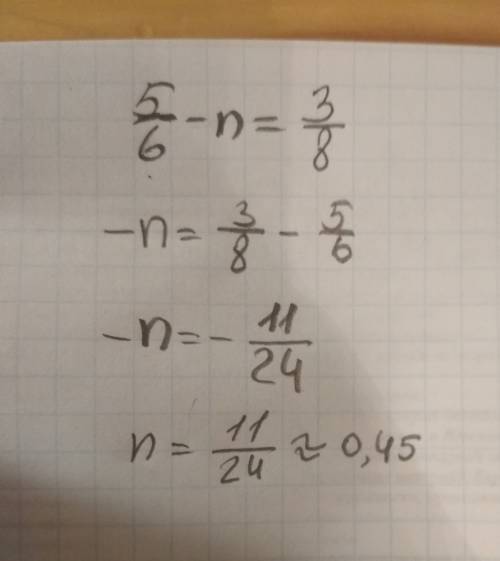 5/6 - n = 3/8
-n = 3/8 - 5/6
-n = - 11/24
n = 11/24 ≈ 0,45